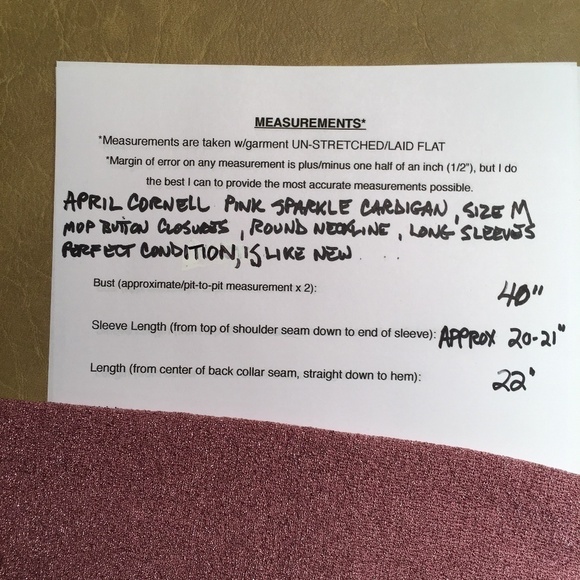 MEASUREMENTS*
*Measurements are taken w/garment UN-STRETCHED/LAID FLAT
*Margin of error on any measurement is plus/minus one half of an inch (1/2"), but I do
the best I can to provide the most accurate measurements possible.
APRIL CORNELL PINK SPARKLE CARDIGAN, SIZE M
MOP BUTTON CLOSURES, ROUND NECKLINE, LONG SLEEVES
PERFECT CONDITION, IS LIKE NEW
Bust (approximate/pit-to-pit measurement x 2): 40"
Sleeve Length (from top of shoulder seam down to end of sleeve): APPROX 20-21"
Length (from center of back collar seam, straight down to hem): 22"